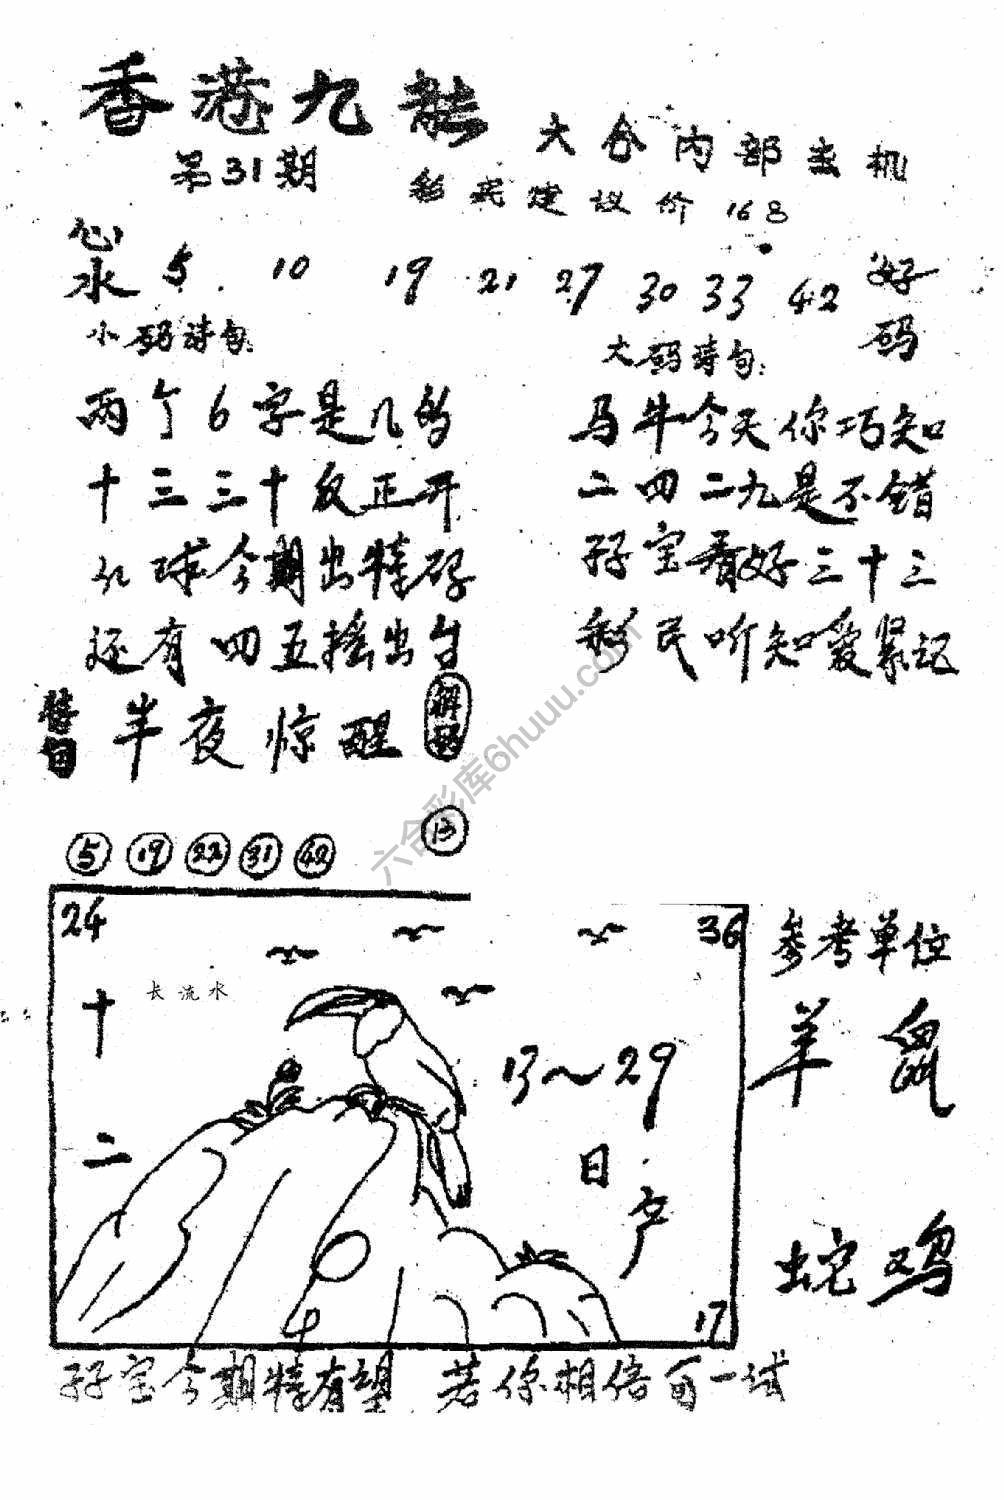 香港九龙
第31期
六合内部玄机
彩民建议价168
心水 5 10 19 21 27 30 33 42 好码
小码诗句:
两个6字是几的
十三三十反正开
红球今期出特码
还有四五摇出台
大码诗句:
马牛今天你巧知
二四二九是不错
孖宝看好三十三
彩民听知爱紧记
半夜惊醒
解码
13
5 19 22 31 42
24
36
十二
长流水
13～29
日
17
参考单位
羊 鼠
蛇 鸡
孖宝今期特有望 若你相信可一试
六合彩库6huuu.com